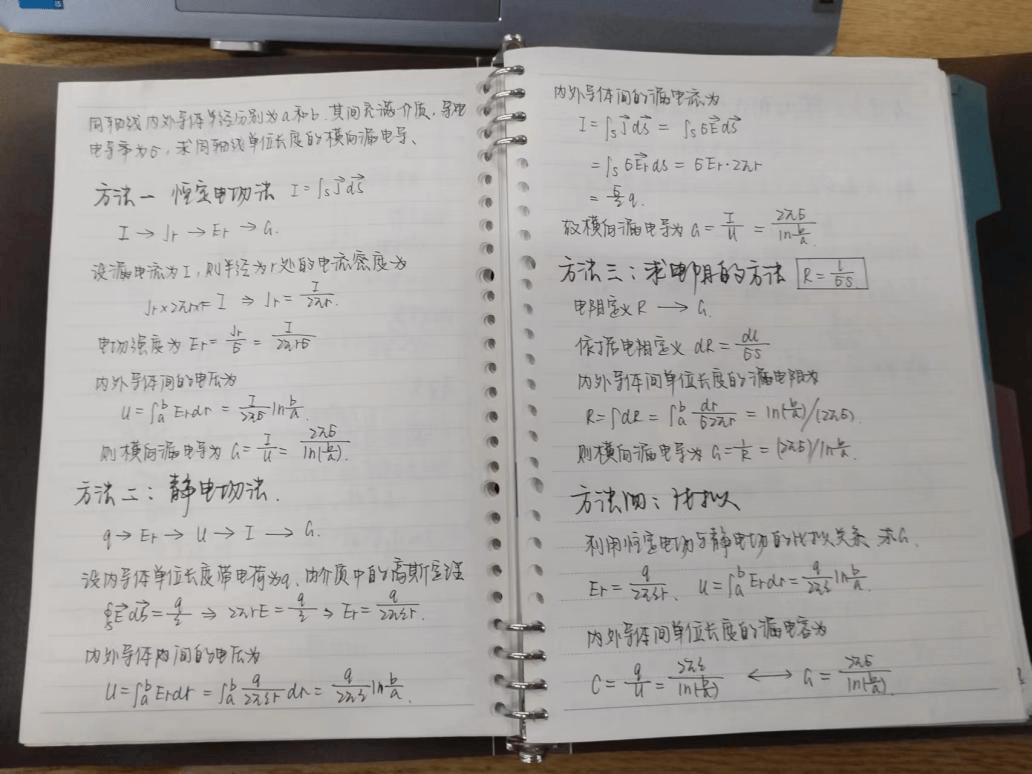 同轴线内外导体半径分别为a和b.其间充满介质,导电
电导率为σ,求同轴线单位长度的横向漏电导、
方法一 恒定电场法 I=∫s J⃗ dS⃗
I → Jr → Er → G.
设漏电流为I,则半径为r处的电流密度为
Jr×2πr×= I ⇒ Jr = I/2πr.
电场强度为 Er = Jr/σ = I/2πrσ
内外导体间的电压为
U=∫a^b Erdr = I/2πσ ln b/a.
则横向漏电导为 G= I/U = 2πσ/ln(b/a).
方法二:静电场法.
q → Er → U → I → G.
设内导体单位长度带电荷为q、由介质中的高斯定理
∮s E⃗ dS⃗ = q/ε ⇒ 2πrE = q/ε ⇒ Er = q/2πεr.
内外导体内间的电压为
U=∫a^b Erdr = ∫a^b q/2πεr dr = q/2πε ln b/a.
内外导体间的漏电流为
I = ∫s J⃗ dS⃗ = ∫s σE⃗ dS⃗
= ∫s σE⃗r ds = σEr·2πr
= σ/ε q.
故横向漏电导为 G = I/U = 2πσ/ln b/a
方法三:求电阻的方法 R = l/σS
电阻定义 R → G.
依据电阻定义 dR = dl/σS
内外导体间单位长度的漏电阻为
R=∫dR = ∫a^b dr/σ2πr = ln(b/a)/(2πσ)
则横向漏电导为 G= 1/R = (2πσ)/ln b/a.
方法四:比拟
利用恒定电场与静电场的比拟关系 求G.
Er = q/2πεr、 U=∫a^b Erdr = q/2πε ln b/a.
内外导体间单位长度的漏电容为
C = q/U = 2πε/ln(b/a) ⟷ G = 2πσ/ln(b/a)